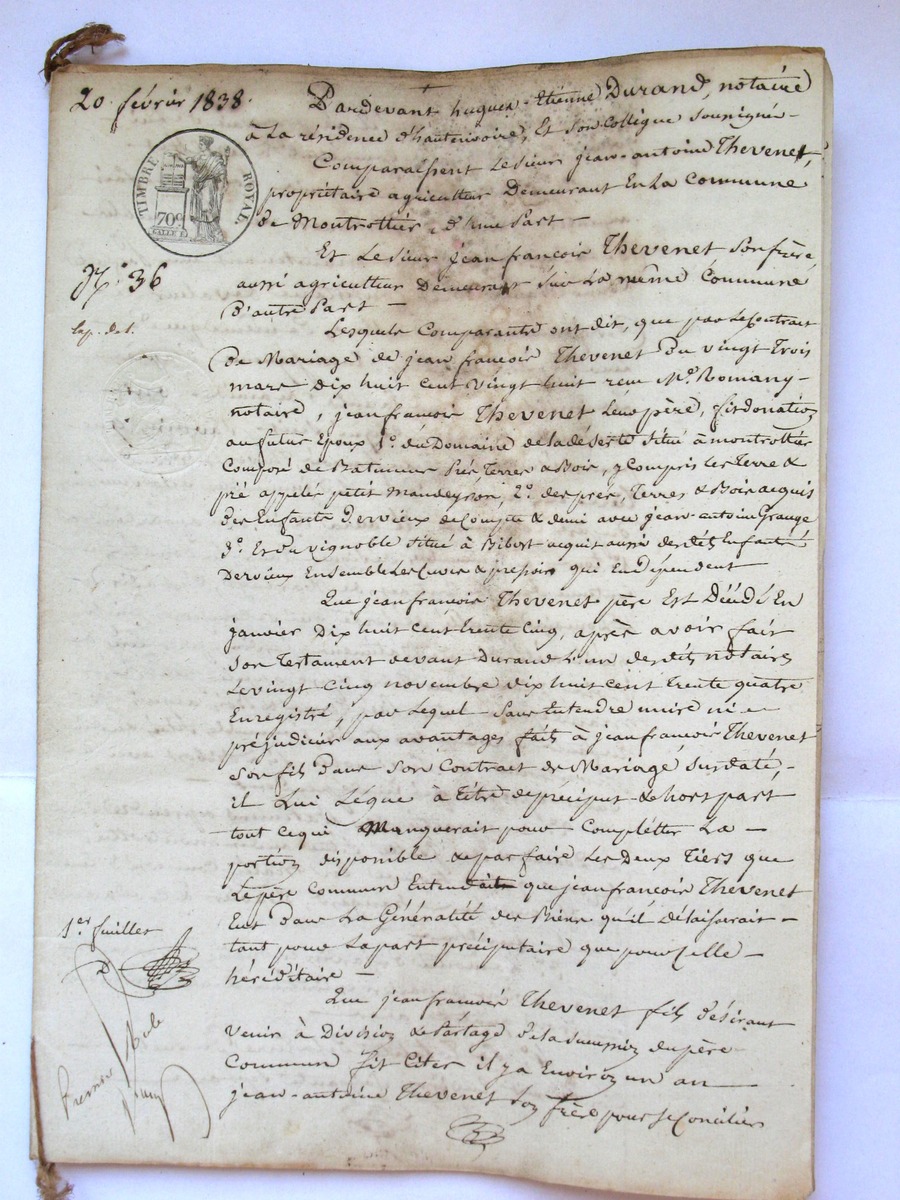 20 février 1838.
Pardevant hugues-Etienne Durand, notaire
à La résidence d'hauterivoire, Et son Collègue soussigné-
TIMBRE ROYAL
70c
Comparaissent Le sieur jean-antoine Thevenet,
propriétaire agriculteur Demeurant En La Commune
de Montrottier, d'une Part -
Et Le sieur jean francois Thevenet son frère,
36
aussi agriculteur Demeurant Sur La même Commune
d'autre Part -
Lesquels Comparants ont dit, que par Le Contrat
de Mariage de jean francois Thevenet Du vingt Trois
mars dix huit cent vingt huit reçu Me Romany-
notaire, jean francois Thevenet Leur père, fit donation
au futur Epoux 1o. du Domaine de la déserte situé à montrottier
Composé de Batimens Prés, Terres & Bois, y Compris Les Terre &
pré appelés petit 2o. des prés, Terres & Bois acquis
des Enfants Dervieux de Compte & demi avec jean-antoine Grange
3o. Et du vignoble situé à Bibost acquit aussi desdits Enfants
Dervieux Ensemble Les Cuves & pressoir qui En dépendent
Que jean francois Thevenet père Est Décédé En
janvier Dix huit Cent trente Cinq, après avoir fait
Son Testament devant Durand L'un desdits notaires
Le vingt Cinq novembre dix huit cent trente quatre
Enregistré, par Lequel Sans Entendre nuire ni
préjudicier aux avantages faits à jean francois Thevenet
son fils Dans Son Contrat de Mariage susdaté, -
il Lui Lègue à titre de préciput & hors part
tout ce qui Manquerait pour Complétter La -
portion disponible & parfaire Les Deux Tiers que
Le père Commun Entendait que jean francois Thevenet
Eut Dans La Généralité des Biens qu'il délaisserait -
1er. feuillet
tant pour La part préciputaire que pour Celle -
héréditaire -
Que jean francois Thevenet fils désirant
venir à Division & Partage de la succession du père
Commun fit Citer il y a Environ un an
jean-antoine Thevenet Son frère pour se Concilier